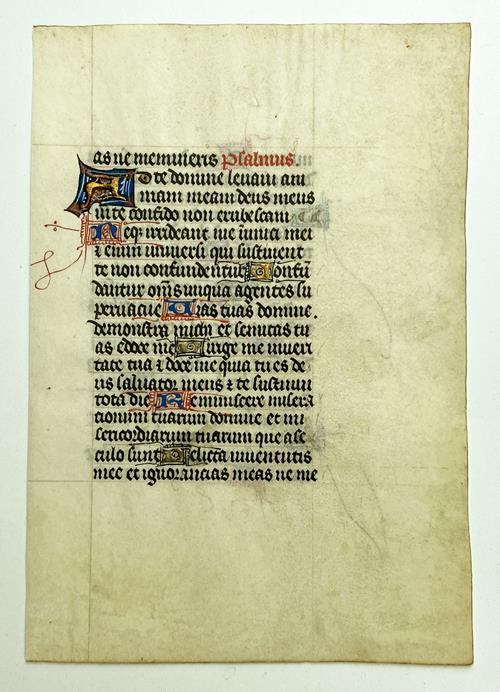 as ne memineris psalmus.
Ad te domine levavi ani
mam meam deus meus
in te confido non erubescam
Neq; irrideant me inimici mei
etenim universi qui sustinent
te non confundentur Confu
dantur om̄s iniqua agentes su
pervacue Vias tuas domine.
demonstra michi et semitas tu
as edoce me Dirige me in veri
tate tua ⁊ doce me quia tu es de
us salvator meus ⁊ te sustinui
tota die Reminiscere misera
tionum tuarum domine et mi
sericordiarum tuarum que a se
culo sunt Delicta iuventutis
mee et ignorancias meas ne me